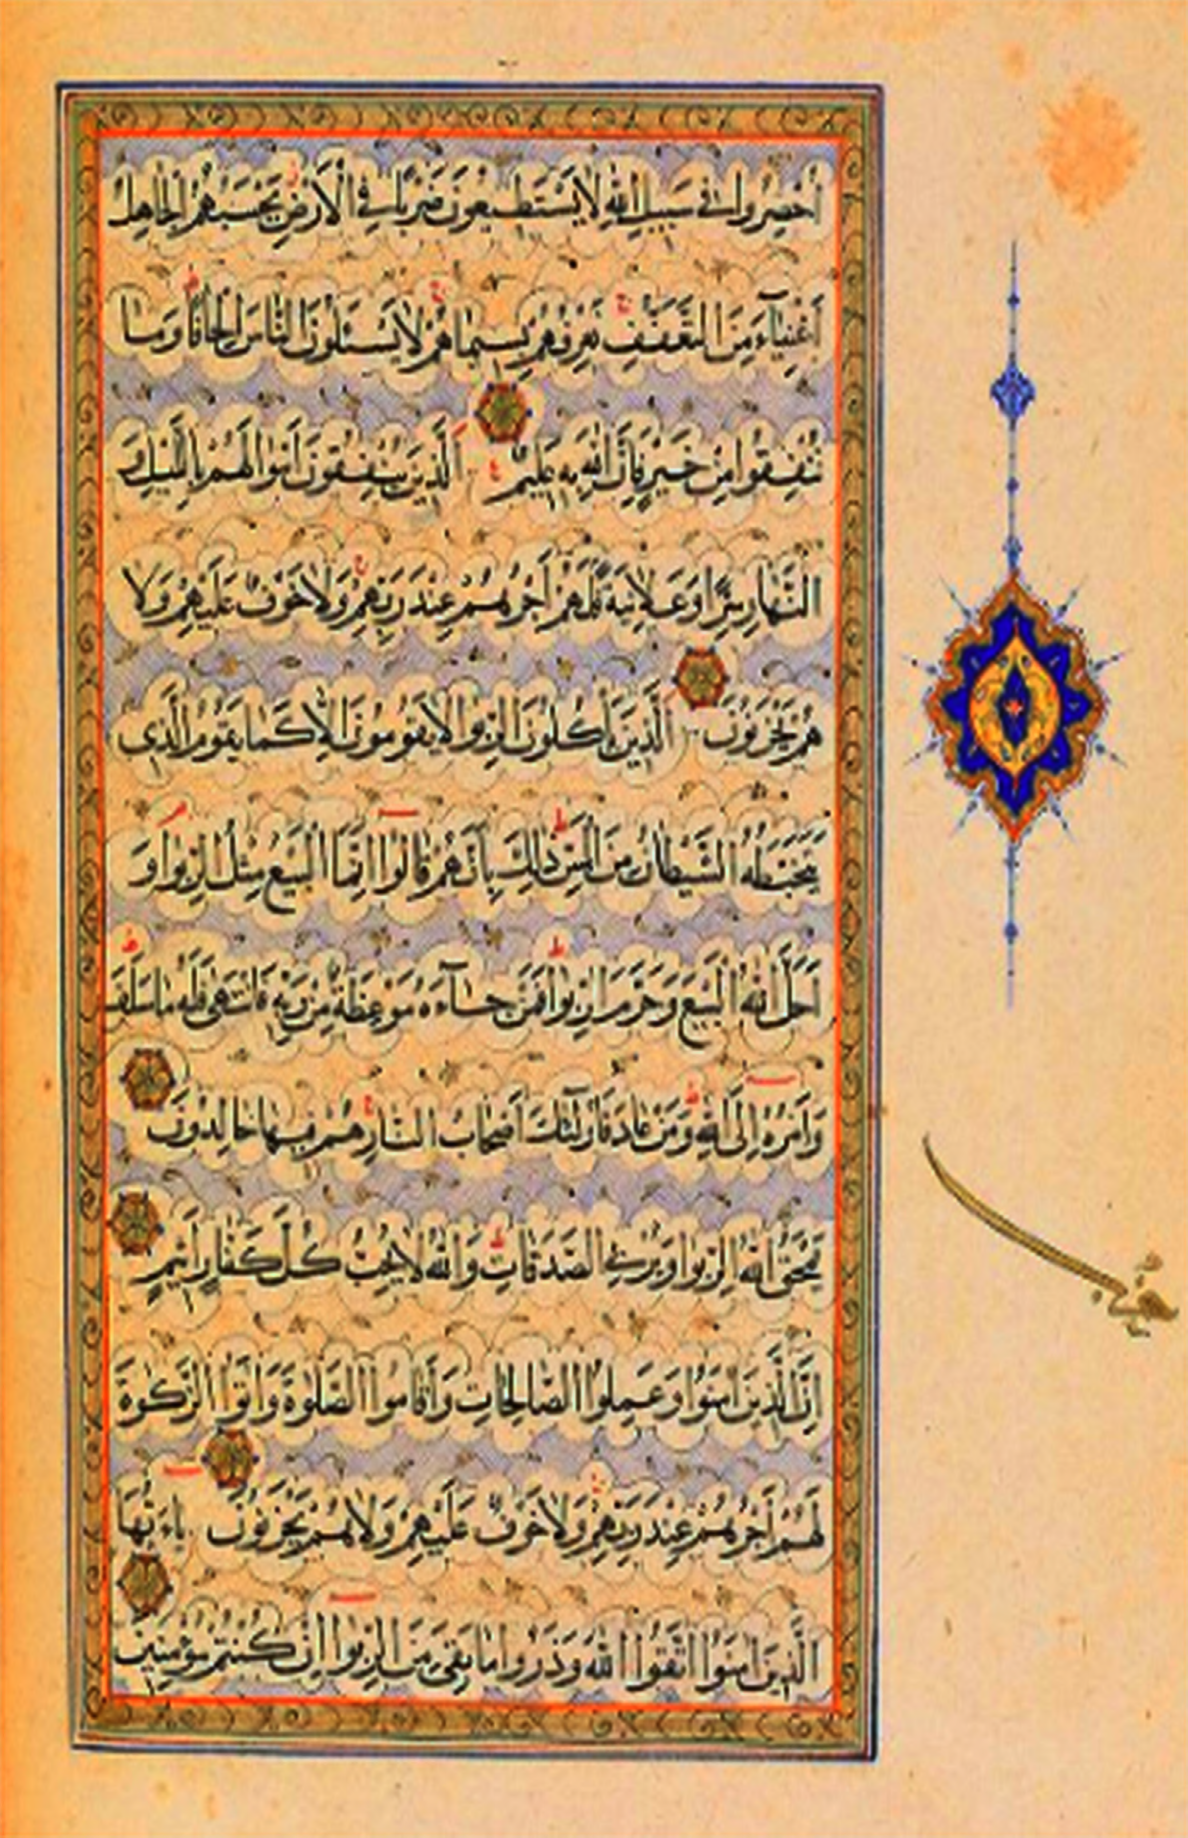 أُحْصِرُوا فِي سَبِيلِ اللَّهِ لَا يَسْتَطِيعُونَ ضَرْبًا فِي الْأَرْضِ يَحْسَبُهُمُ الْجَاهِلُ
أَغْنِيَآءَ مِنَ التَّعَفُّفِ تَعْرِفُهُمْ بِسِيمَاهُمْ لَا يَسْئَلُونَ النَّاسَ إِلْحَافًا وَمَا
تُنْفِقُوا مِنْ خَيْرٍ فَإِنَّ اللَّهَ بِهِ عَلِيمٌ الَّذِينَ يُنْفِقُونَ أَمْوَالَهُمْ بِاللَّيْلِ وَ
النَّهَارِ سِرًّا وَعَلَانِيَةً فَلَهُمْ أَجْرُهُمْ عِنْدَ رَبِّهِمْ وَلَا خَوْفٌ عَلَيْهِمْ وَلَا
هُمْ يَحْزَنُونَ الَّذِينَ يَأْكُلُونَ الرِّبٰوا لَا يَقُومُونَ إِلَّا كَمَا يَقُومُ الَّذِي
يَتَخَبَّطُهُ الشَّيْطَانُ مِنَ الْمَسِّ ذٰلِكَ بِأَنَّهُمْ قَالُوا إِنَّمَا الْبَيْعُ مِثْلُ الرِّبٰوا وَ
أَحَلَّ اللَّهُ الْبَيْعَ وَحَرَّمَ الرِّبٰوا فَمَنْ جَآءَهُ مَوْعِظَةٌ مِنْ رَبِّهِ فَانْتَهٰى فَلَهُ مَا سَلَفَ
وَأَمْرُهُ إِلَى اللَّهِ وَمَنْ عَادَ فَأُولٰئِكَ أَصْحَابُ النَّارِ هُمْ فِيهَا خَالِدُونَ
يَمْحَقُ اللَّهُ الرِّبٰوا وَيُرْبِي الصَّدَقَاتِ وَاللَّهُ لَا يُحِبُّ كُلَّ كَفَّارٍ أَثِيمٍ
إِنَّ الَّذِينَ آمَنُوا وَعَمِلُوا الصَّالِحَاتِ وَأَقَامُوا الصَّلٰوةَ وَآتَوُا الزَّكٰوةَ
لَهُمْ أَجْرُهُمْ عِنْدَ رَبِّهِمْ وَلَا خَوْفٌ عَلَيْهِمْ وَلَا هُمْ يَحْزَنُونَ يَاءَيُّهَا
الَّذِينَ آمَنُوا اتَّقُوا اللَّهَ وَذَرُوا مَا بَقِيَ مِنَ الرِّبٰوا إِنْ كُنْتُمْ مُؤْمِنِينَ